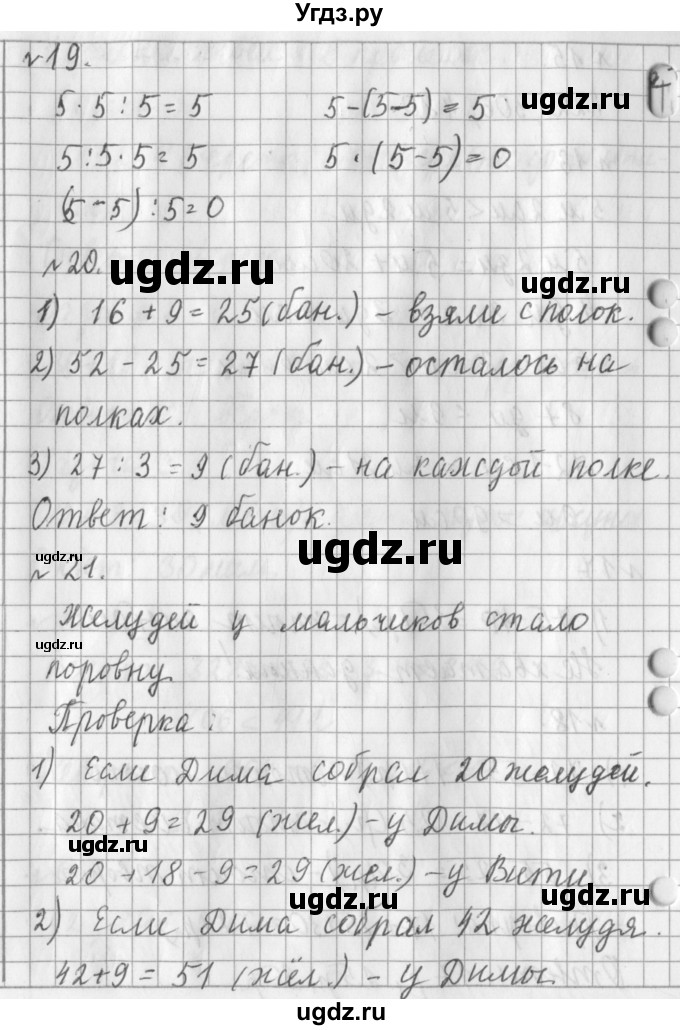 Угдз.ру
№19.
5·5:5=5    5-(5-5)=5
ugdz.ru
5:5·5=5    5·(5-5)=0
ugdz.ru
(5-5):5=0
№20. ugdz.ru
ugdz.ru
1) 16+9=25(бан.) - взяли с полок.
2) 52-25=27(бан.) - осталось на
полках.
ugdz.ru
3) 27:3=9(бан.) - на каждой полке.
Ответ: 9 банок.
ugdz.ru
ugdz.ru
№21.
Желудей у мальчиков стало
ugdz.ru
поровну.
Проверка:
ugdz.ru
1) Если Дима собрал 20 желудей.
20+9=29(жел.) - у Димы.
ugdz.ru
20+18-9=29(жел.) - у Вити.
ugdz.ru
ugdz.ru
2) Если Дима собрал 42 желудя.
ugdz.ru
42+9=51(жёл.) - у Димы.